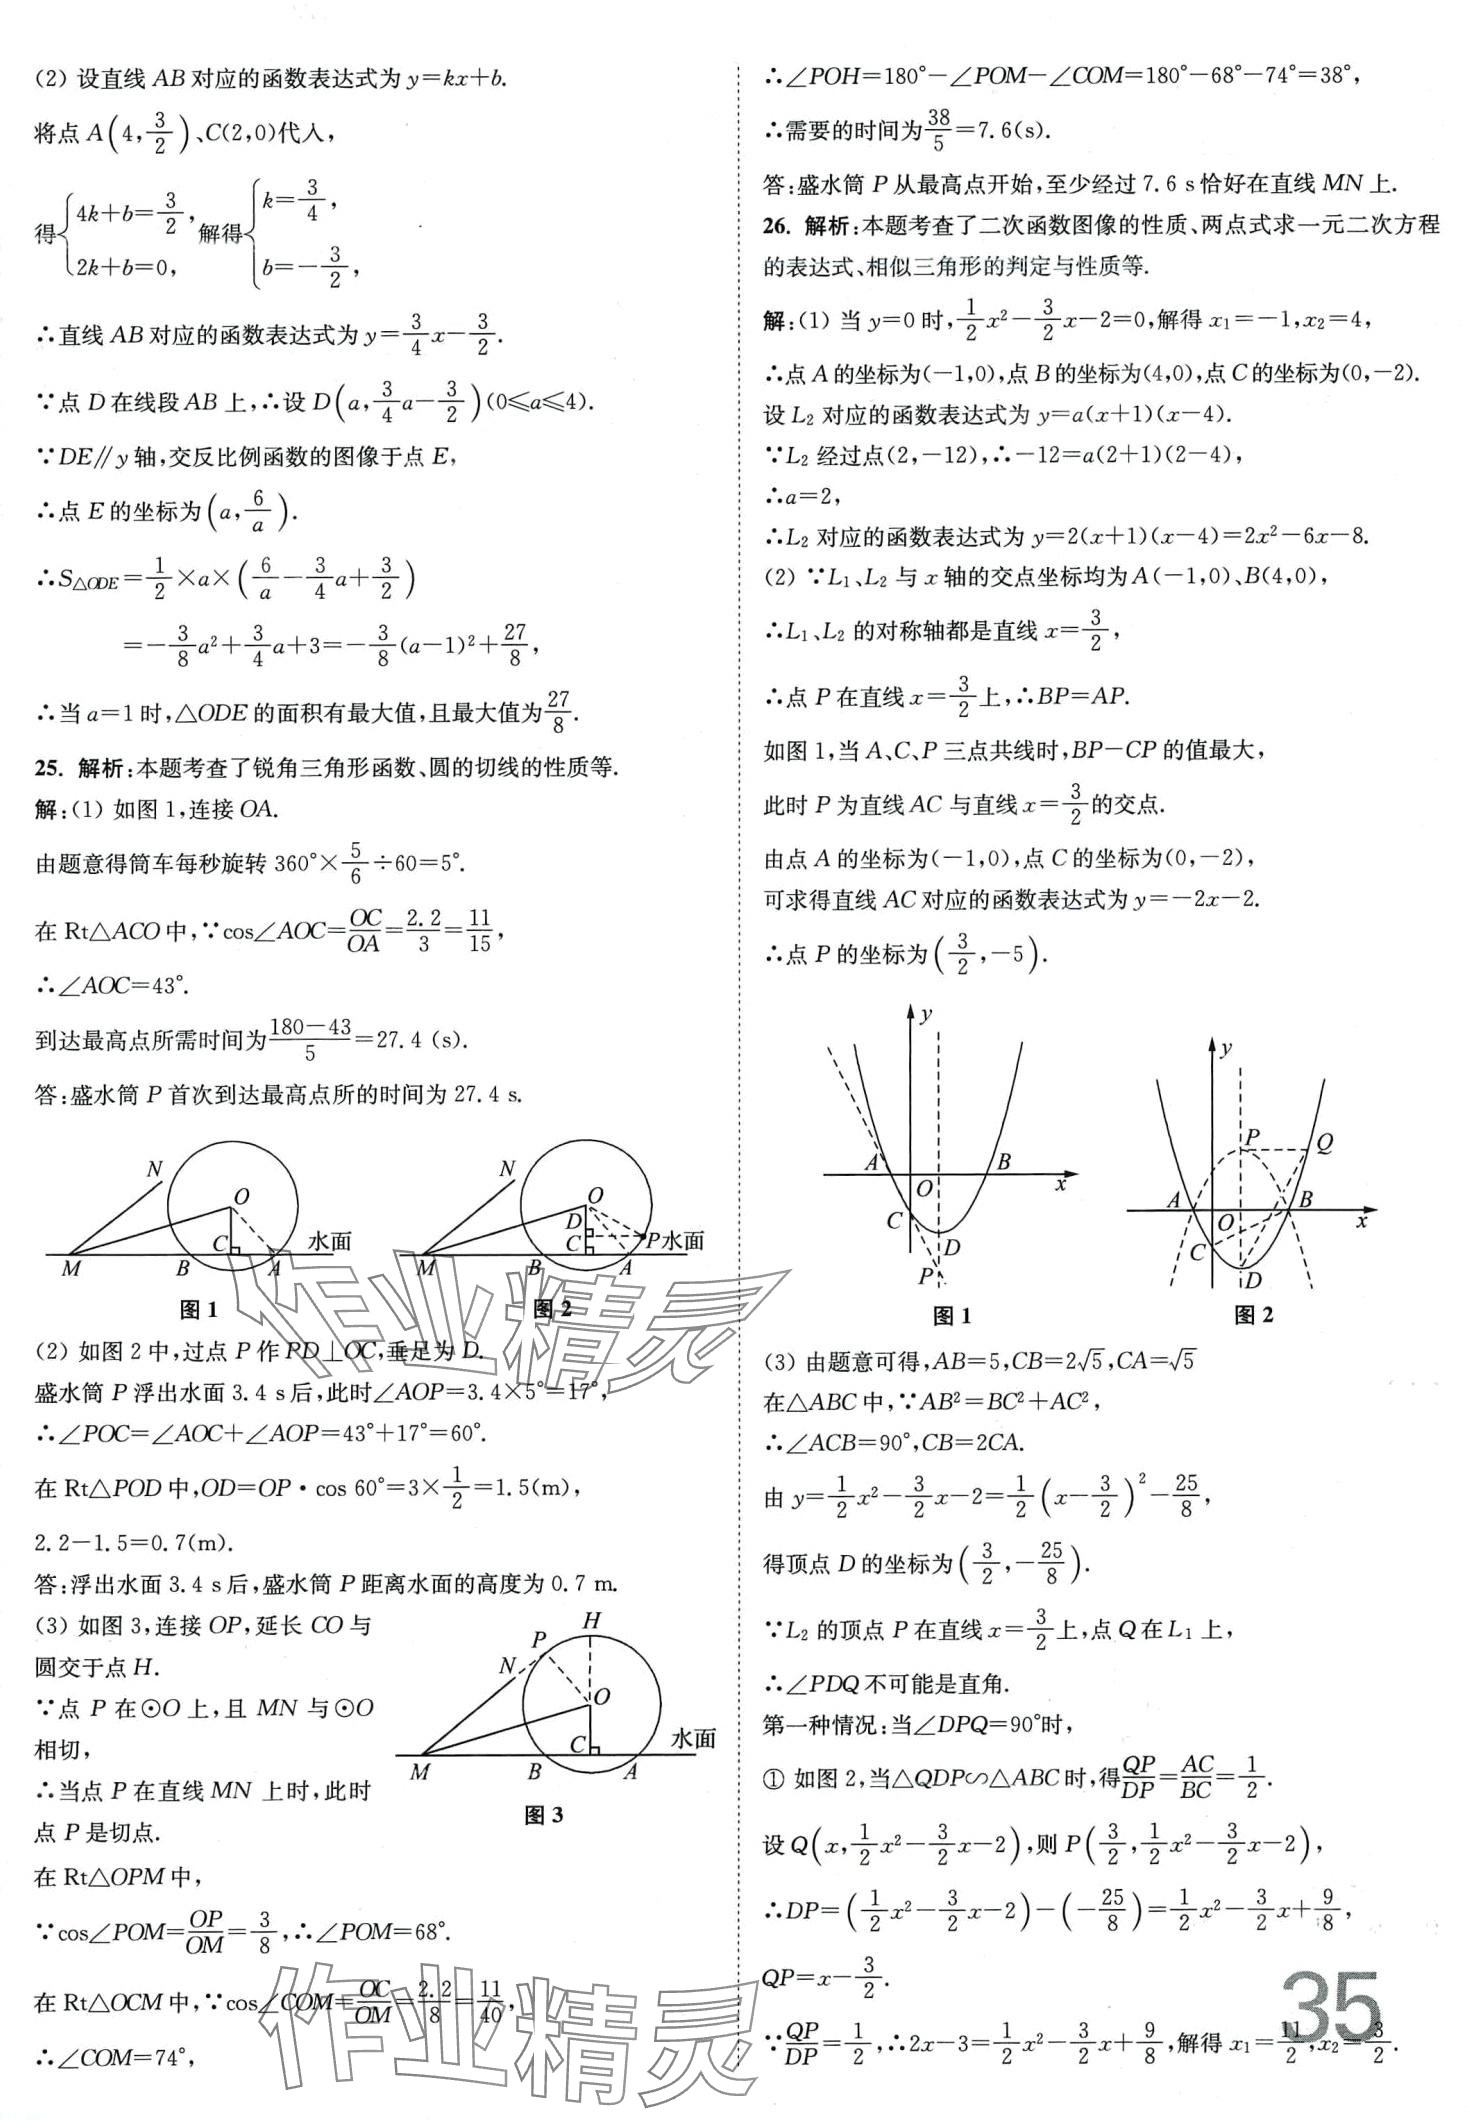 (2) 设直线 AB 对应的函数表达式为 y=kx+b.
将点 A(4, 3/2)、C(2,0)代入,
得{4k+b=3/2, 2k+b=0, 解得{k=3/4, b=-3/2,
∴直线 AB 对应的函数表达式为 y=3/4x-3/2.
∵点 D 在线段 AB 上,∴设 D(a, 3/4a-3/2)(0≤a≤4).
∵DE∥y 轴,交反比例函数的图像于点 E,
∴点 E 的坐标为(a, 6/a).
∴S△ODE=1/2×a×(6/a-3/4a+3/2)
=-3/8a²+3/4a+3=-3/8(a-1)²+27/8,
∴当 a=1 时,△ODE 的面积有最大值,且最大值为27/8.
25. 解析:本题考查了锐角三角形函数、圆的切线的性质等.
解:(1) 如图 1,连接 OA.
由题意得筒车每秒旋转 360°×5/6÷60=5°.
在 Rt△ACO 中,∵cos∠AOC=OC/OA=2.2/3=11/15,
∴∠AOC=43°.
到达最高点所需时间为180-43/5=27.4 (s).
答:盛水筒 P 首次到达最高点所的时间为 27.4 s.
N O C M B A 水面
图 1
N O D C P水面 M B A
图 2
(2) 如图 2 中,过点 P 作 PD⊥OC,垂足为 D.
盛水筒 P 浮出水面 3.4 s 后,此时∠AOP=3.4×5°=17°,
∴∠POC=∠AOC+∠AOP=43°+17°=60°.
在 Rt△POD 中,OD=OP·cos 60°=3×1/2=1.5(m),
2.2-1.5=0.7(m).
答:浮出水面 3.4 s 后,盛水筒 P 距离水面的高度为 0.7 m.
(3) 如图 3,连接 OP,延长 CO 与
圆交于点 H.
∵点 P 在⊙O 上,且 MN 与⊙O
相切,
∴当点 P 在直线 MN 上时,此时
点 P 是切点.
H P N O C 水面 M B A
图 3
在 Rt△OPM 中,
∵cos∠POM=OP/OM=3/8,∴∠POM=68°.
在 Rt△OCM 中,∵cos∠COM=OC/OM=2.2/8=11/40,
∴∠COM=74°,
∴∠POH=180°-∠POM-∠COM=180°-68°-74°=38°,
∴需要的时间为38/5=7.6(s).
答:盛水筒 P 从最高点开始,至少经过 7.6 s 恰好在直线 MN 上.
26. 解析:本题考查了二次函数图像的性质、两点式求一元二次方程
的表达式、相似三角形的判定与性质等.
解:(1) 当 y=0 时,1/2x²-3/2x-2=0,解得 x₁=-1,x₂=4,
∴点 A 的坐标为(-1,0),点 B 的坐标为(4,0),点 C 的坐标为(0,-2).
设 L₂ 对应的函数表达式为 y=a(x+1)(x-4).
∵L₂ 经过点(2,-12),∴-12=a(2+1)(2-4),
∴a=2,
∴L₂ 对应的函数表达式为 y=2(x+1)(x-4)=2x²-6x-8.
(2) ∵L₁、L₂ 与 x 轴的交点坐标均为 A(-1,0)、B(4,0),
∴L₁、L₂ 的对称轴都是直线 x=3/2,
∴点 P 在直线 x=3/2上,∴BP=AP.
如图 1,当 A、C、P 三点共线时,BP-CP 的值最大,
此时 P 为直线 AC 与直线 x=3/2的交点.
由点 A 的坐标为(-1,0),点 C 的坐标为(0,-2),
可求得直线 AC 对应的函数表达式为 y=-2x-2.
∴点 P 的坐标为(3/2,-5).
y A B O x C D P
图 1
y P Q A B O x C D
图 2
(3) 由题意可得,AB=5,CB=2√5,CA=√5
在△ABC 中,∵AB²=BC²+AC²,
∴∠ACB=90°,CB=2CA.
由 y=1/2x²-3/2x-2=1/2(x-3/2)²-25/8,
得顶点 D 的坐标为(3/2,-25/8).
∵L₂ 的顶点 P 在直线 x=3/2上,点 Q 在 L₁ 上,
∴∠PDQ 不可能是直角.
第一种情况:当∠DPQ=90°时,
① 如图 2,当△QDP∽△ABC 时,得QP/DP=AC/BC=1/2.
设 Q(x, 1/2x²-3/2x-2),则 P(3/2, 1/2x²-3/2x-2),
∴DP=(1/2x²-3/2x-2)-(-25/8)=1/2x²-3/2x+9/8,
QP=x-3/2.
∵QP/DP=1/2,∴2x-3=1/2x²-3/2x+9/8,解得 x₁=11/2,x₂=3/2.
35
作业精灵
作业精灵